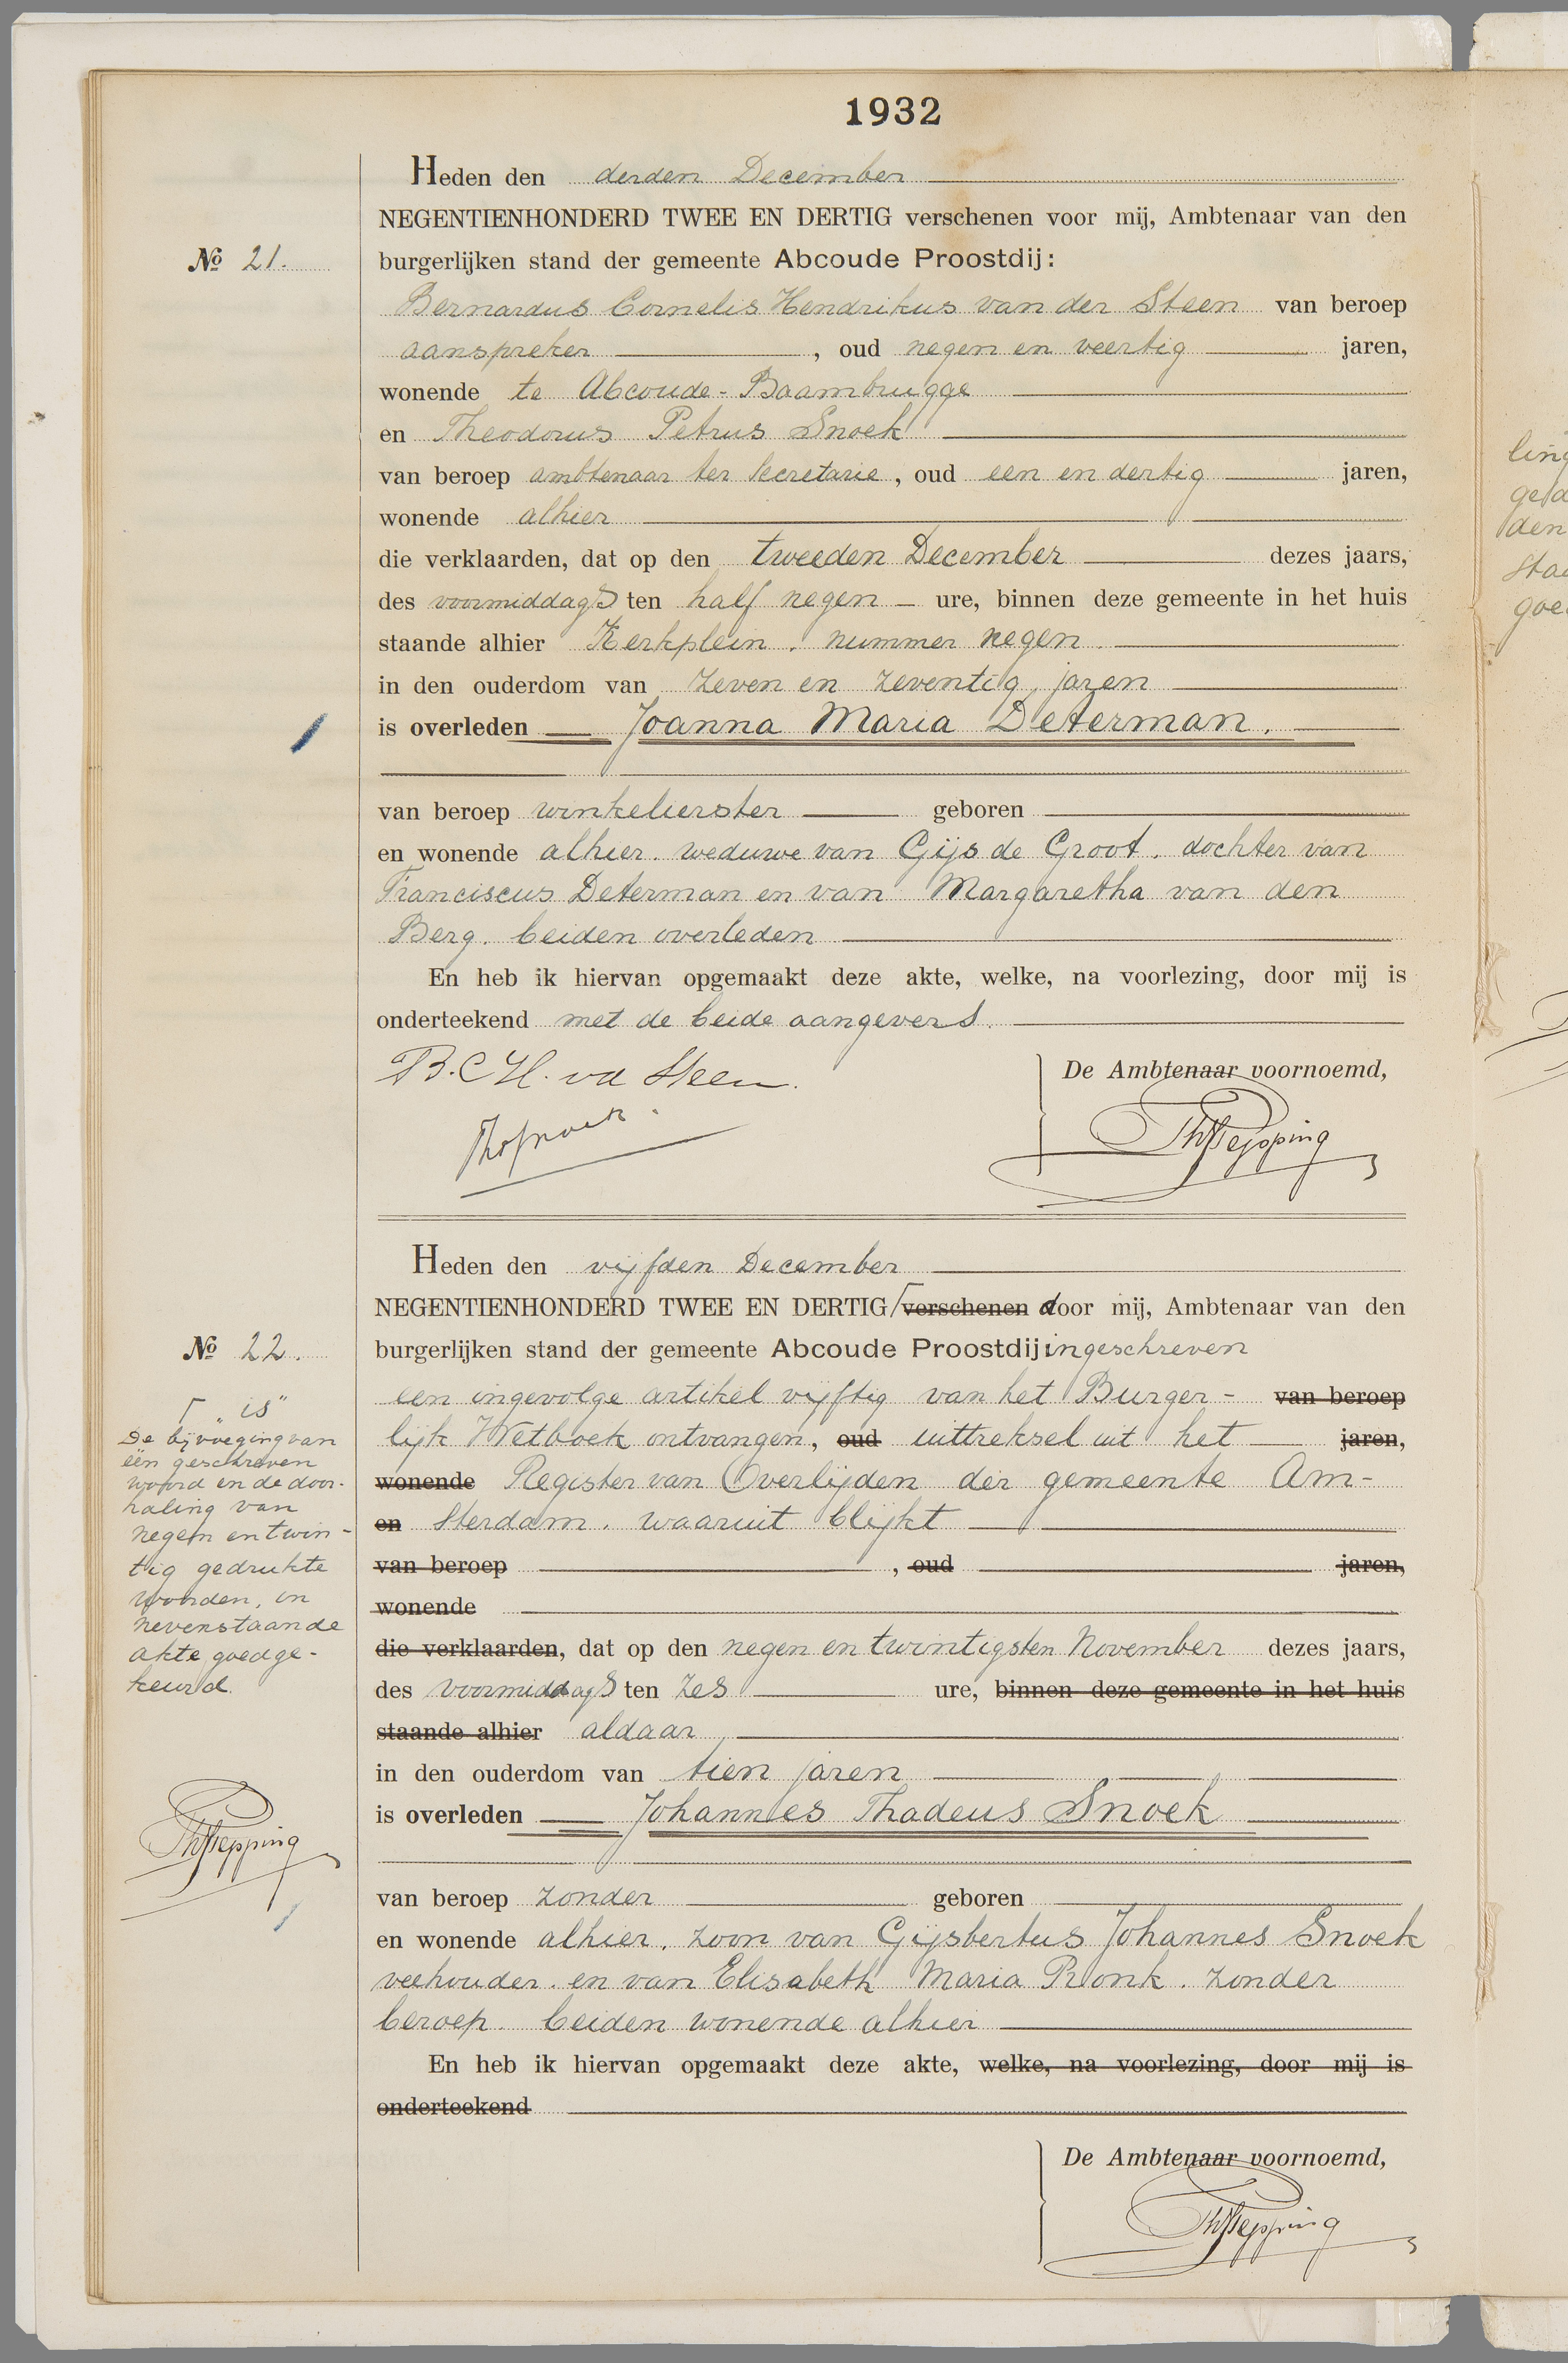 1932
Heden den derden December
NEGENTIENHONDERD TWEE EN DERTIG verschenen voor mij, Ambtenaar van den
No 21.
burgerlijken stand der gemeente Abcoude Proostdij:
Bernardus Cornelis Hendrikus van der Steen van beroep
aanspreker, oud negen en veertig jaren,
wonende te Abcoude-Baambrugge
en Theodorus Petrus Snoek
van beroep ambtenaar ter secretarie, oud een en dertig jaren,
wonende alhier
die verklaarden, dat op den tweeden December dezes jaars,
des voormiddags ten half negen ure, binnen deze gemeente in het huis
staande alhier Kerkplein. nummer negen
in den ouderdom van zeven en zeventig jaren
is overleden Joanna Maria Determan.
van beroep winkelierster geboren
en wonende alhier. weduwe van Gijs de Groot. dochter van
Franciscus Determan en van Margaretha van den
Berg. beiden overleden
En heb ik hiervan opgemaakt deze akte, welke, na voorlezing, door mij is
onderteekend met de beide aangevers.
B.C.H. vd Steen.
De Ambtenaar voornoemd,
Heden den vijfden December
NEGENTIENHONDERD TWEE EN DERTIG verschenen door mij, Ambtenaar van den
No 22.
burgerlijken stand der gemeente Abcoude Proostdij ingeschreven
een ingevolge artikel vijftig van het Burger- van beroep
lijk Wetboek ontvangen, oud uittreksel uit het jaren,
wonende Register van Overlijden der gemeente Am-
en sterdam. waaruit blijkt
van beroep, oud jaren,
wonende
die verklaarden, dat op den negen en twintigsten November dezes jaars,
des voormiddags ten zes ure, binnen deze gemeente in het huis
staande alhier aldaar
in den ouderdom van tien jaren
is overleden Johannes Thadeus Snoek
van beroep zonder geboren
en wonende alhier. zoon van Gijsbertus Johannes Snoek
veehouder. en van Elisabeth Maria Pronk. zonder
beroep. beiden wonende alhier
En heb ik hiervan opgemaakt deze akte, welke, na voorlezing, door mij is
onderteekend
De Ambtenaar voornoemd,
"is"
De bijvoeging van
één geschreven
woord en de door-
haling van
negen en twin-
tig gedrukte
woorden, in
nevenstaande
akte goedge-
keurd.